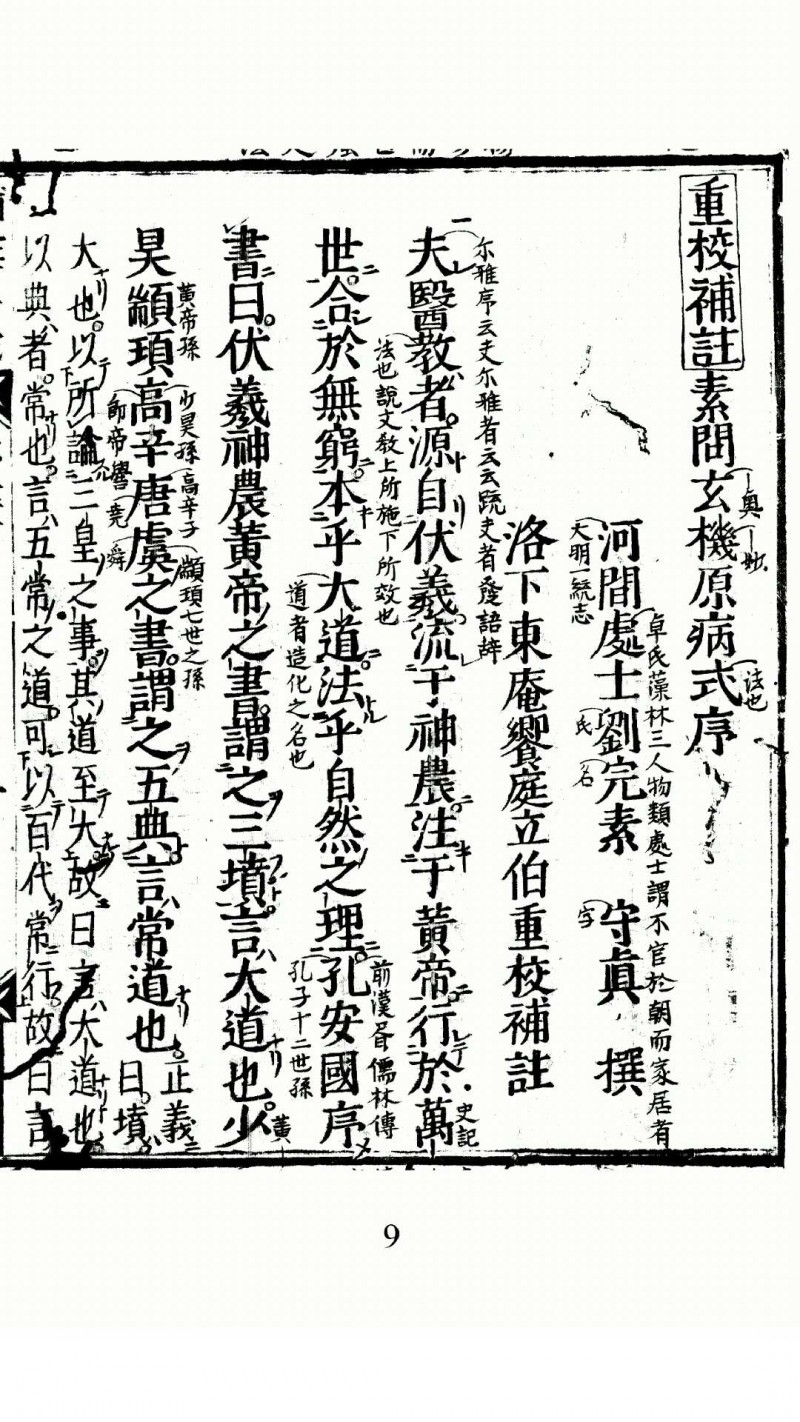 重校補註素問玄機原病式序
｜奧
｜妙
法也
卓氏藻林三人物類處士謂不官於朝而家居者
河間處士劉完素 守眞 撰
大明一統志
氏
名
字
洛下東庵饗庭立伯重校補註
尔雅序云夫尔雅者云云疏夫者發語辞
夫醫教者源自伏羲流于神農注于黃帝行於萬
史記
法也說文教上所施下所效也
世合於無窮本乎大道法乎自然之理孔安國序
道者造化之名也
前漢書儒林傳
孔子十二世孫
書曰伏羲神農黃帝之書謂之三墳言大道也少
黃帝孫
少昊孫
高辛子
顓頊七世之孫
昊顓頊高辛唐虞之書謂之五典言常道也
帝嚳
堯
舜
正義曰墳
大也以所論三皇之事其道至大故曰言大道也
以典者常也言五常之道可以百代常行故曰言
9